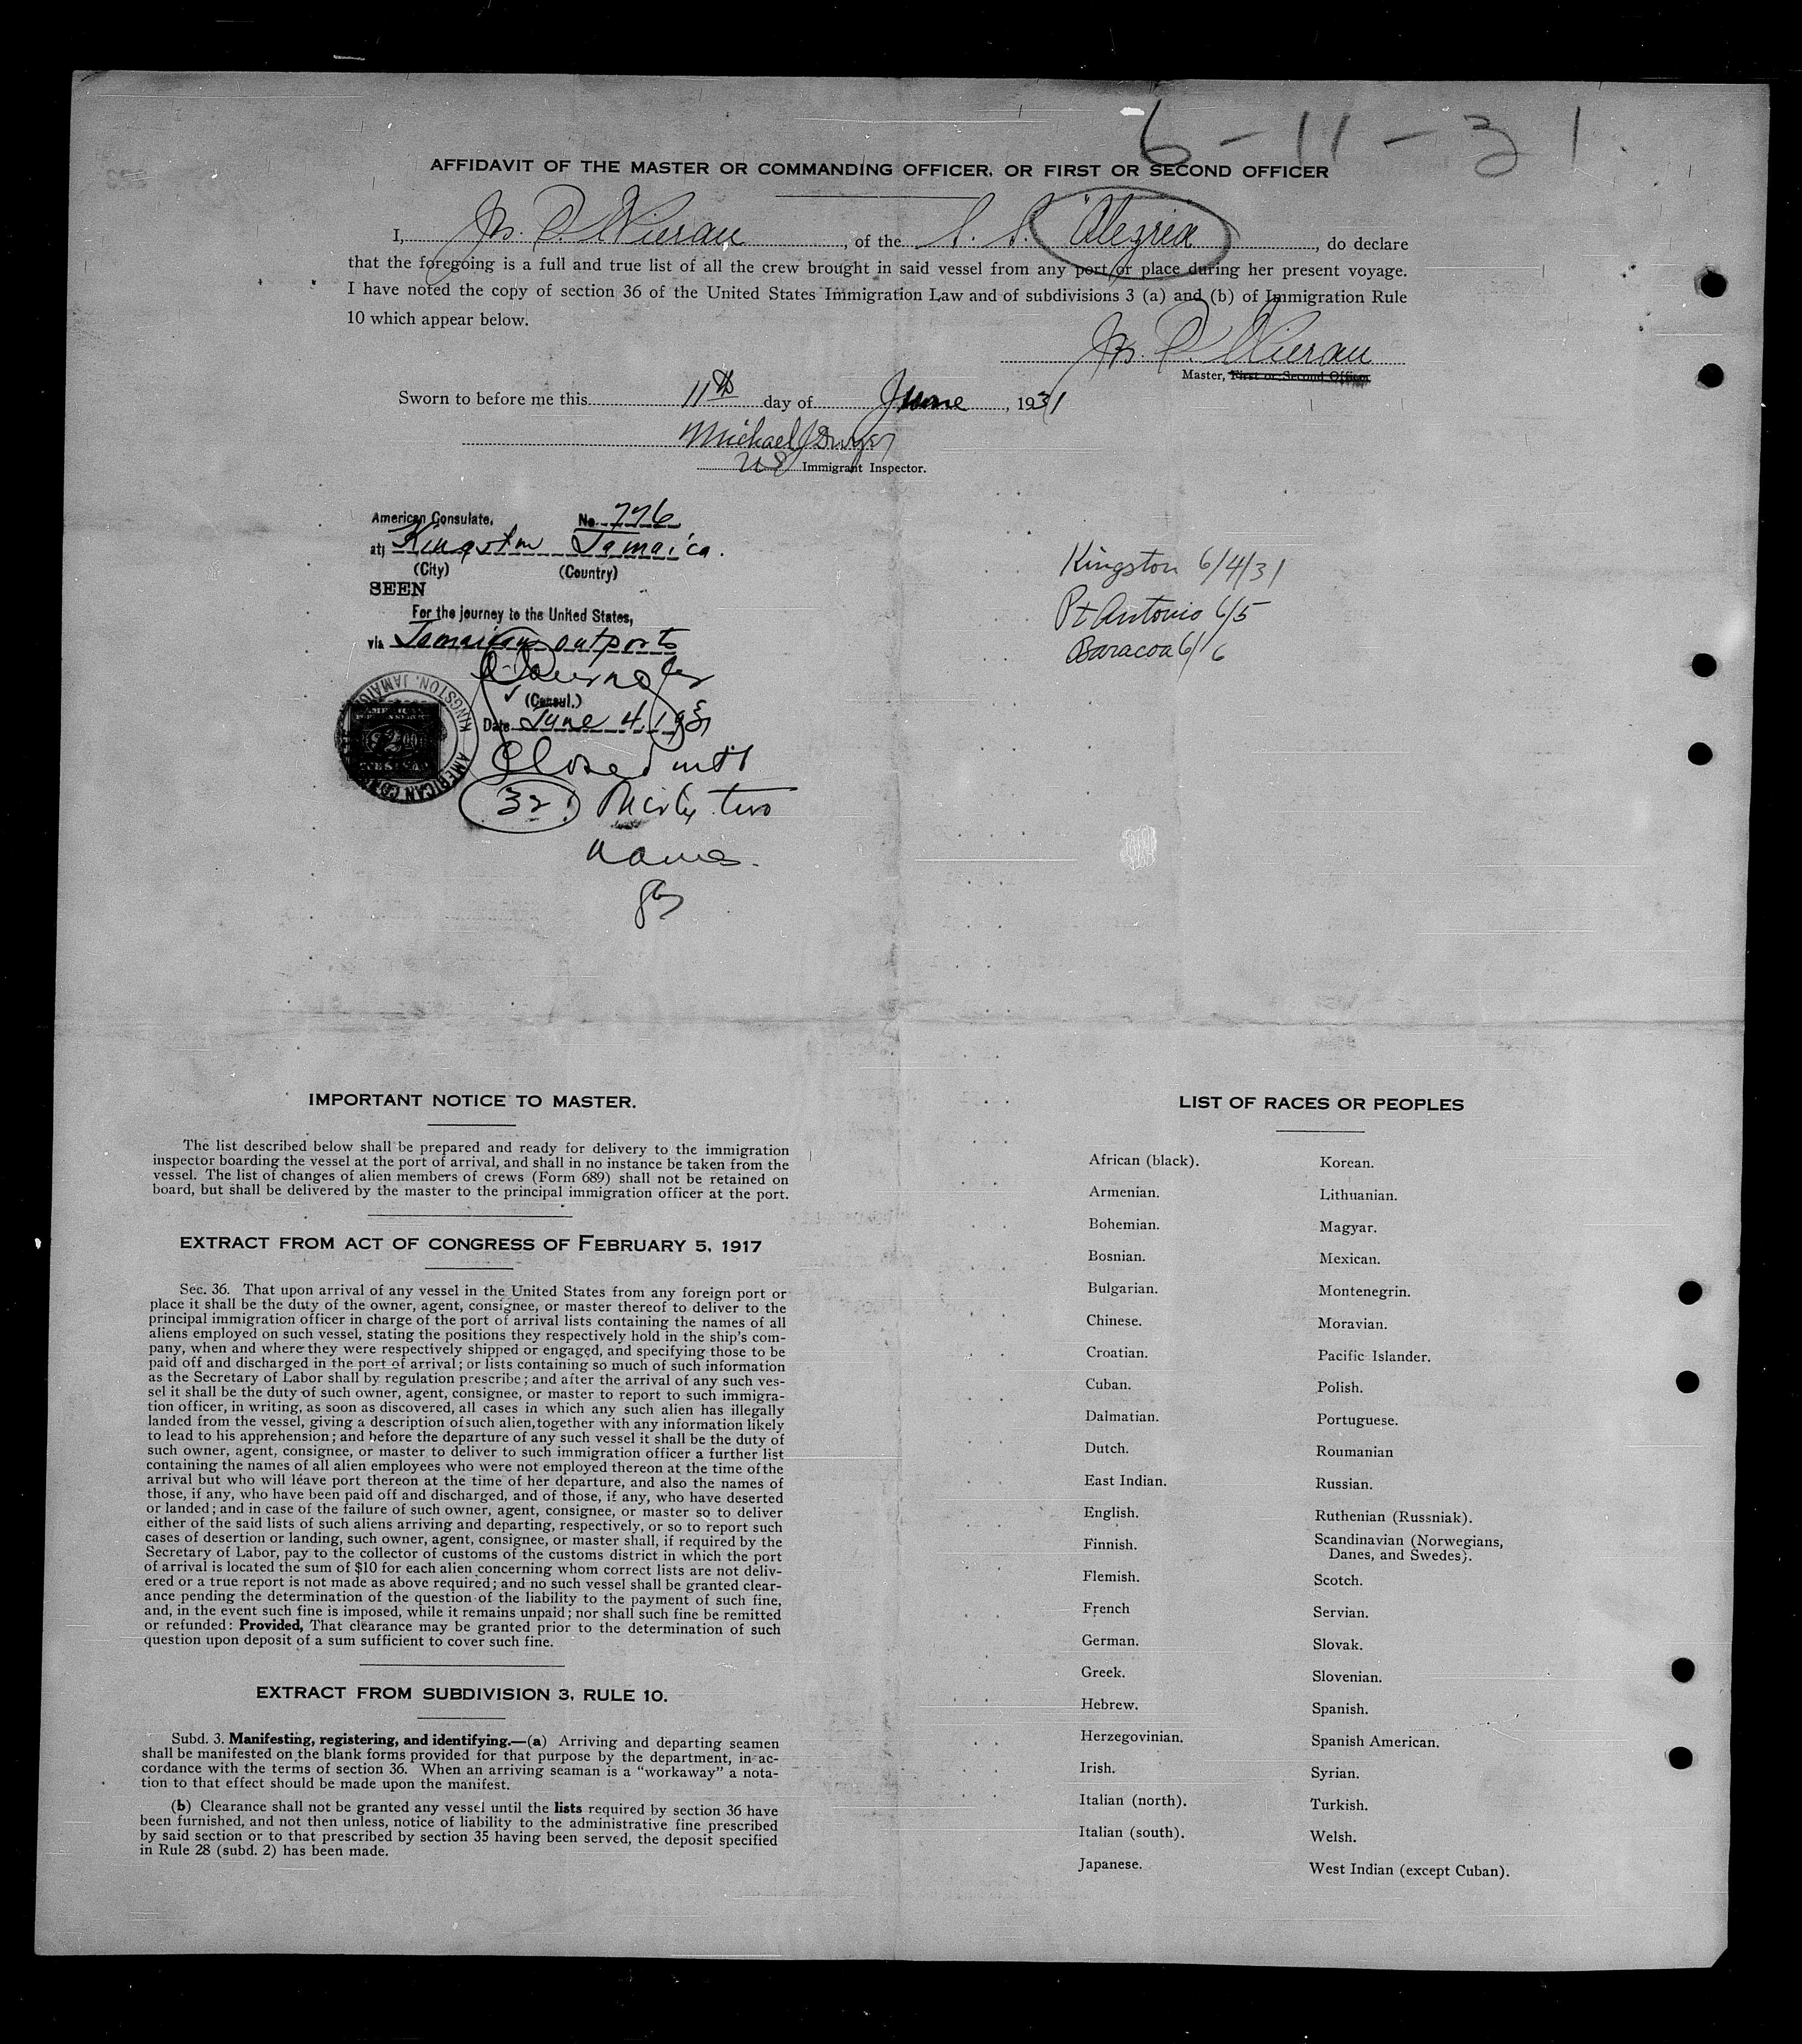 6-11-31
AFFIDAVIT OF THE MASTER OR COMMANDING OFFICER, OR FIRST OR SECOND OFFICER
I, , of the S. S. "Alegria" , do declare
that the foregoing is a full and true list of all the crew brought in said vessel from any port or place during her present voyage.
I have noted the copy of section 36 of the United States Immigration Law and of subdivisions 3 (a) and (b) of Immigration Rule
10 which appear below.
Master, First or Second Officer
Sworn to before me this 11th day of June, 1931
Michael J Dwyer
US Immigrant Inspector.
American Consulate, No. 776
at Kingston Jamaica.
(City) (Country)
SEEN
For the journey to the United States,
via Jamaican outports
(Consul.)
Date June 4, 1931
KINGSTON, JAMAICA
AMERICAN
Closed with
32 Thirty two
names.
Kingston 6/4/31
Pt Antonio 6/5
Baracoa 6/6
IMPORTANT NOTICE TO MASTER.
The list described below shall be prepared and ready for delivery to the immigration
inspector boarding the vessel at the port of arrival, and shall in no instance be taken from the
vessel. The list of changes of alien members of crews (Form 689) shall not be retained on
board, but shall be delivered by the master to the principal immigration officer at the port.
EXTRACT FROM ACT OF CONGRESS OF FEBRUARY 5, 1917
Sec. 36. That upon arrival of any vessel in the United States from any foreign port or
place it shall be the duty of the owner, agent, consignee, or master thereof to deliver to the
principal immigration officer in charge of the port of arrival lists containing the names of all
aliens employed on such vessel, stating the positions they respectively hold in the ship's com-
pany, when and where they were respectively shipped or engaged, and specifying those to be
paid off and discharged in the port of arrival; or lists containing so much of such information
as the Secretary of Labor shall by regulation prescribe; and after the arrival of any such ves-
sel it shall be the duty of such owner, agent, consignee, or master to report to such immigra-
tion officer, in writing, as soon as discovered, all cases in which any such alien has illegally
landed from the vessel, giving a description of such alien, together with any information likely
to lead to his apprehension; and before the departure of any such vessel it shall be the duty of
such owner, agent, consignee, or master to deliver to such immigration officer a further list
containing the names of all alien employees who were not employed thereon at the time of the
arrival but who will leave port thereon at the time of her departure, and also the names of
those, if any, who have been paid off and discharged, and of those, if any, who have deserted
or landed; and in case of the failure of such owner, agent, consignee, or master so to deliver
either of the said lists of such aliens arriving and departing, respectively, or so to report such
cases of desertion or landing, such owner, agent, consignee, or master shall, if required by the
Secretary of Labor, pay to the collector of customs of the customs district in which the port
of arrival is located the sum of $10 for each alien concerning whom correct lists are not deliv-
ered or a true report is not made as above required; and no such vessel shall be granted clear-
ance pending the determination of the question of the liability to the payment of such fine,
and, in the event such fine is imposed, while it remains unpaid; nor shall such fine be remitted
or refunded: Provided, That clearance may be granted prior to the determination of such
question upon deposit of a sum sufficient to cover such fine.
EXTRACT FROM SUBDIVISION 3, RULE 10.
Subd. 3. Manifesting, registering, and identifying.—(a) Arriving and departing seamen
shall be manifested on the blank forms provided for that purpose by the department, in ac-
cordance with the terms of section 36. When an arriving seaman is a "workaway" a nota-
tion to that effect should be made upon the manifest.
(b) Clearance shall not be granted any vessel until the lists required by section 36 have
been furnished, and not then unless, notice of liability to the administrative fine prescribed
by said section or to that prescribed by section 35 having been served, the deposit specified
in Rule 28 (subd. 2) has been made.
LIST OF RACES OR PEOPLES
African (black).
Armenian.
Bohemian.
Bosnian.
Bulgarian.
Chinese.
Croatian.
Cuban.
Dalmatian.
Dutch.
East Indian.
English.
Finnish.
Flemish.
French
German.
Greek.
Hebrew.
Herzegovinian.
Irish.
Italian (north).
Italian (south).
Japanese.
Korean.
Lithuanian.
Magyar.
Mexican.
Montenegrin.
Moravian.
Pacific Islander.
Polish.
Portuguese.
Roumanian
Russian.
Ruthenian (Russniak).
Scandinavian (Norwegians,
Danes, and Swedes).
Scotch.
Servian.
Slovak.
Slovenian.
Spanish.
Spanish American.
Syrian.
Turkish.
Welsh.
West Indian (except Cuban).